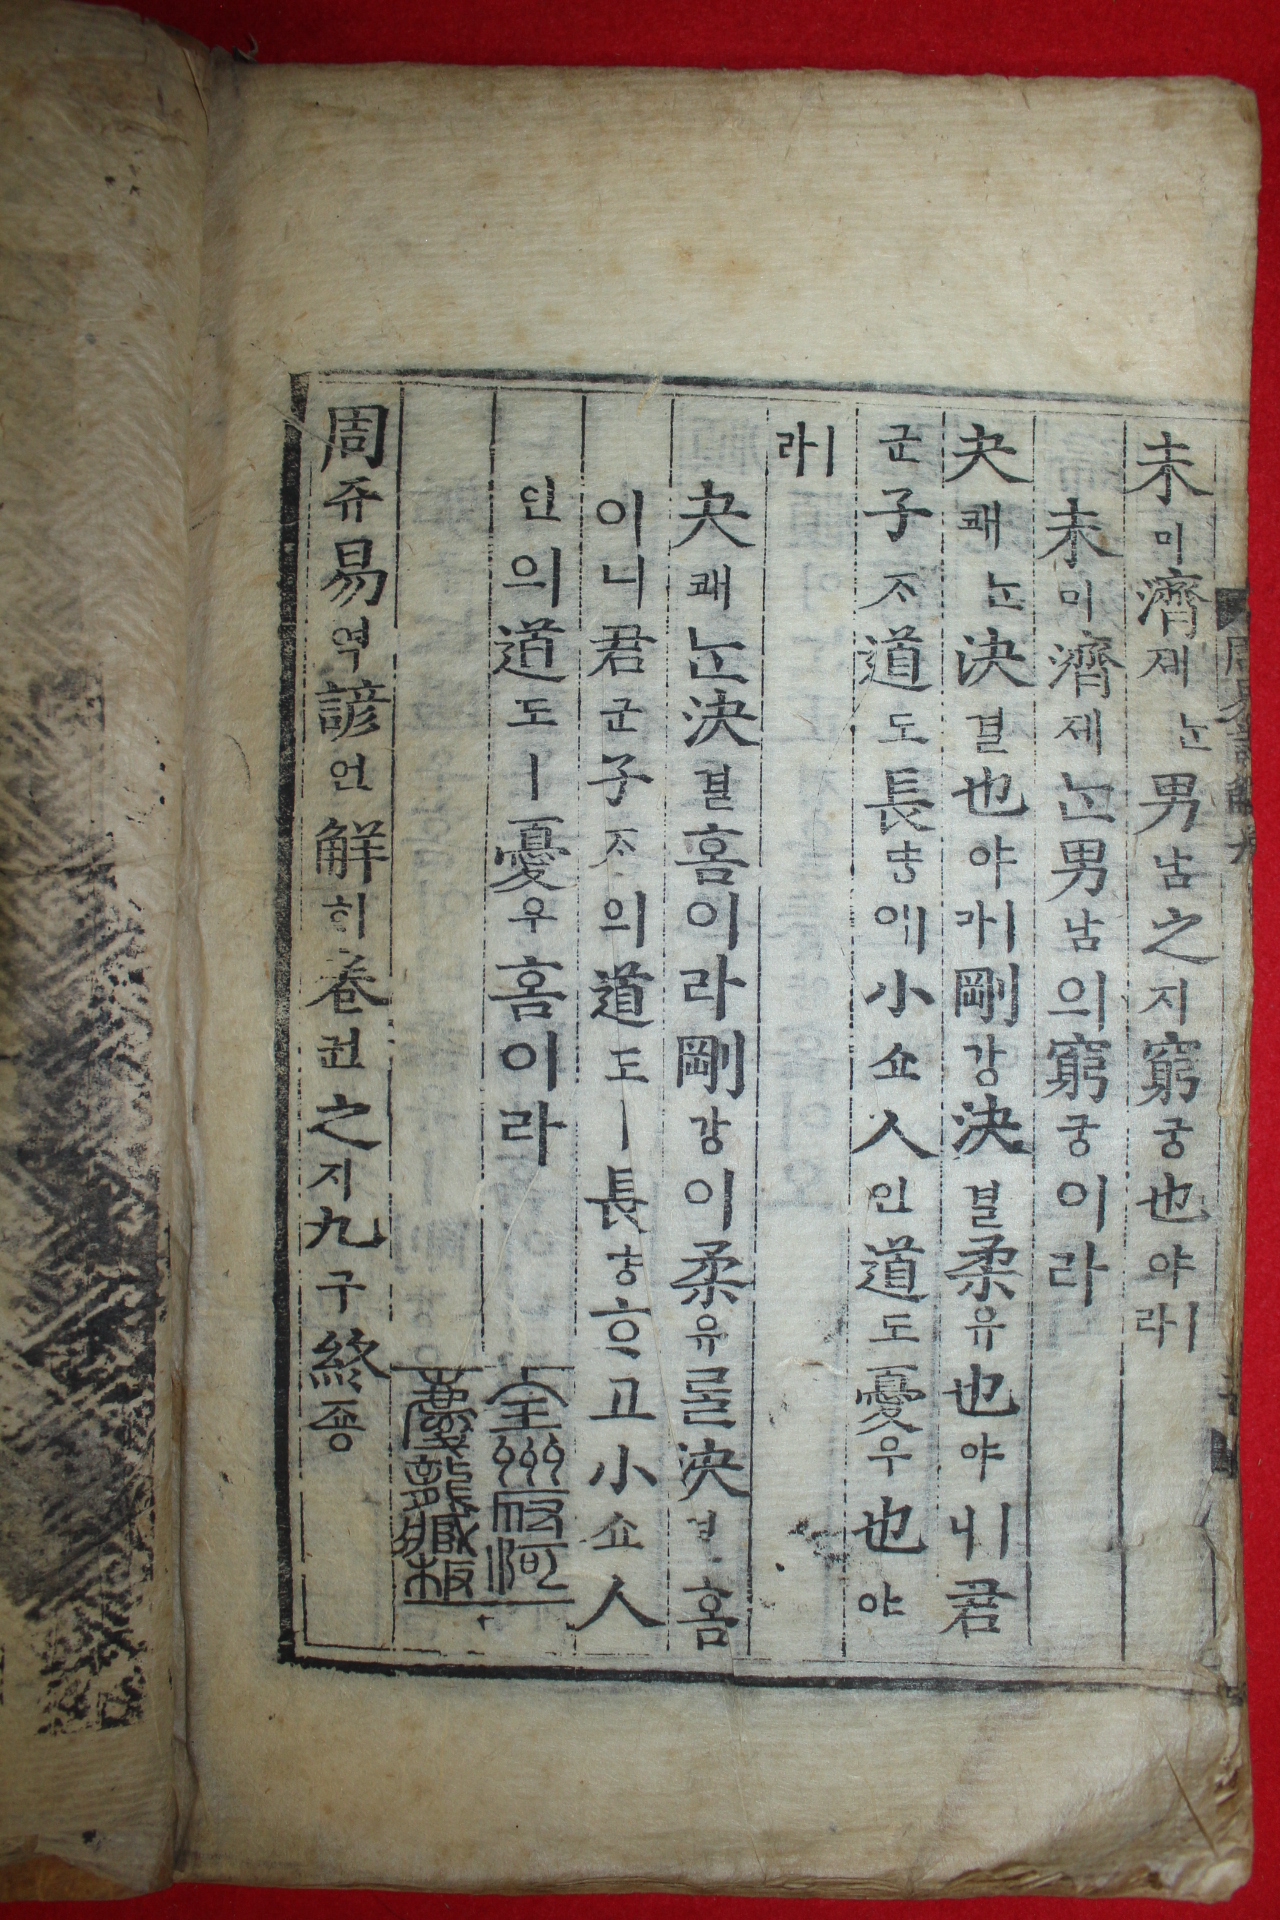 周易諺解 九
未미濟졔ᄂᆞᆫ男남之지窮궁也야ㅣ라
未미濟졔ᄂᆞᆫ男남의窮궁이라
夬쾌ᄂᆞᆫ決결也야ㅣ라剛강決결柔유也야ㅣ니君
군子ᄌᆞ道도長댱小쇼人인道도憂우也야
ㅣ라
夬쾌ᄂᆞᆫ決결홈이라剛강이柔유ᄅᆞᆯ決결홈
이니君군子ᄌᆞ의道도ㅣ長댱ᄒᆞ고小쇼人
인의道도ㅣ憂우홈이라
全州府河
慶龍藏板
周쥬易역諺언解ᄒᆡ卷권之지九구終죵